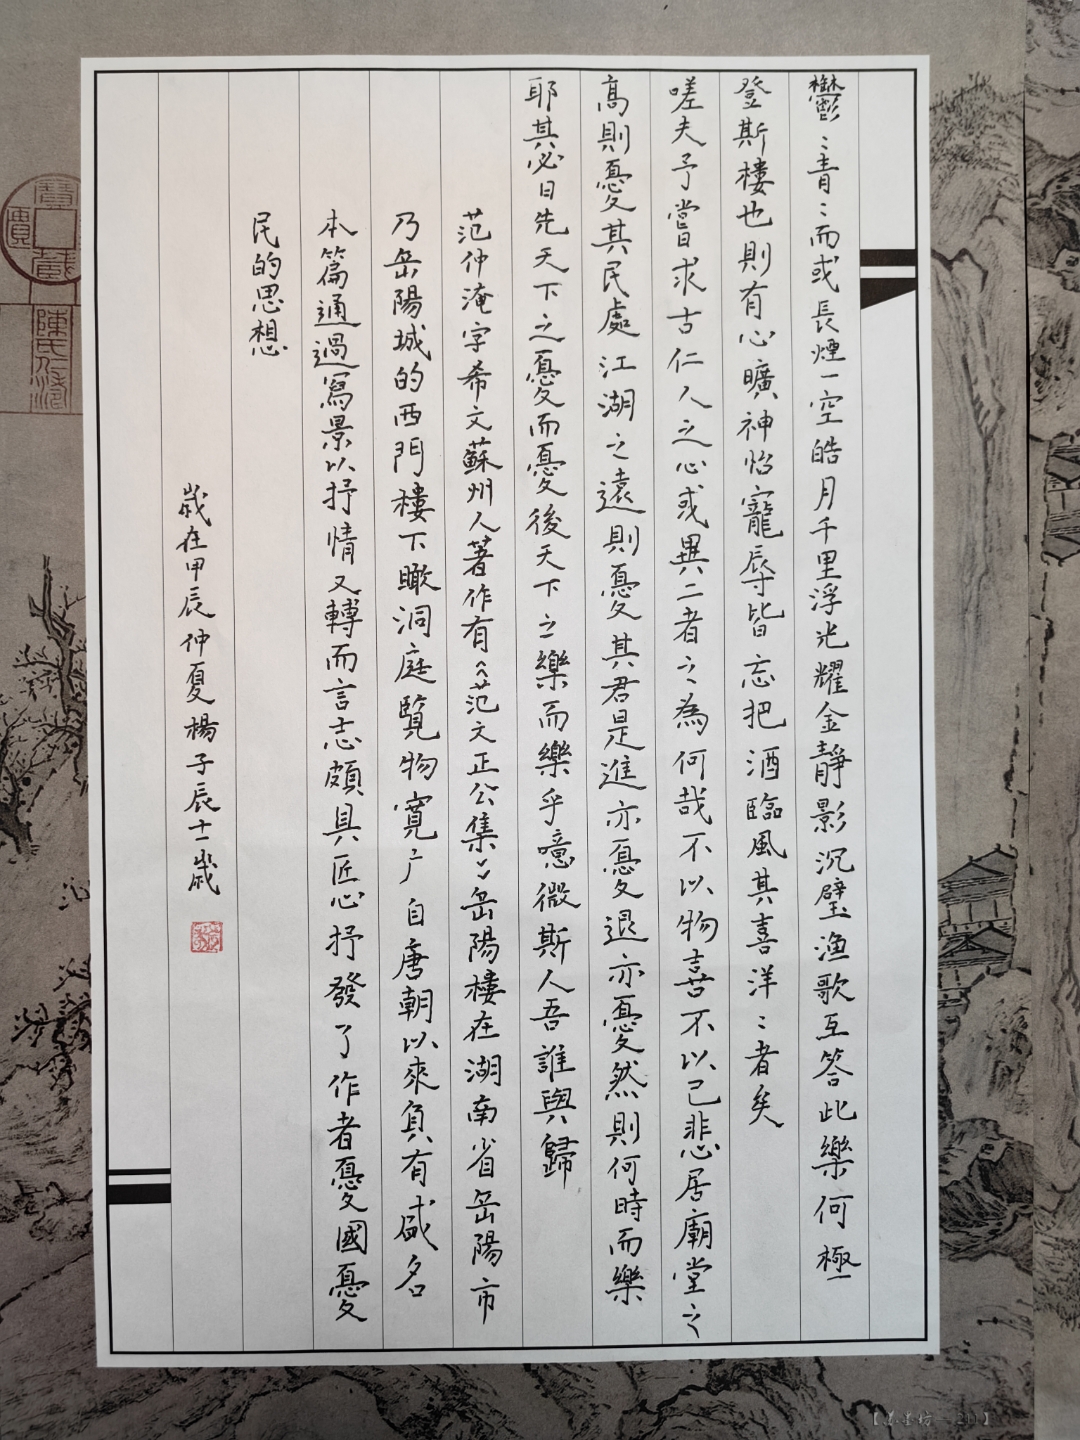 鬱〻青〻而或長煙一空皓月千里浮光耀金靜影沉璧漁歌互答此樂何極
登斯樓也則有心曠神怡寵辱皆忘把酒臨風其喜洋〻者矣
嗟夫予嘗求古仁人之心或異二者之為何哉不以物喜不以己悲居廟堂之
高則憂其民處江湖之遠則憂其君是進亦憂退亦憂然則何時而樂
耶其必曰先天下之憂而憂後天下之樂而樂乎噫微斯人吾誰與歸
范仲淹字希文蘇州人著作有《范文正公集》岳陽樓在湖南省岳陽市
乃岳陽城的西門樓下瞰洞庭覽物寬广自唐朝以來負有盛名
本篇通過寫景以抒情又轉而言志頗具匠心抒發了作者憂國憂
民的思想
歲在甲辰仲夏楊子辰十一歲